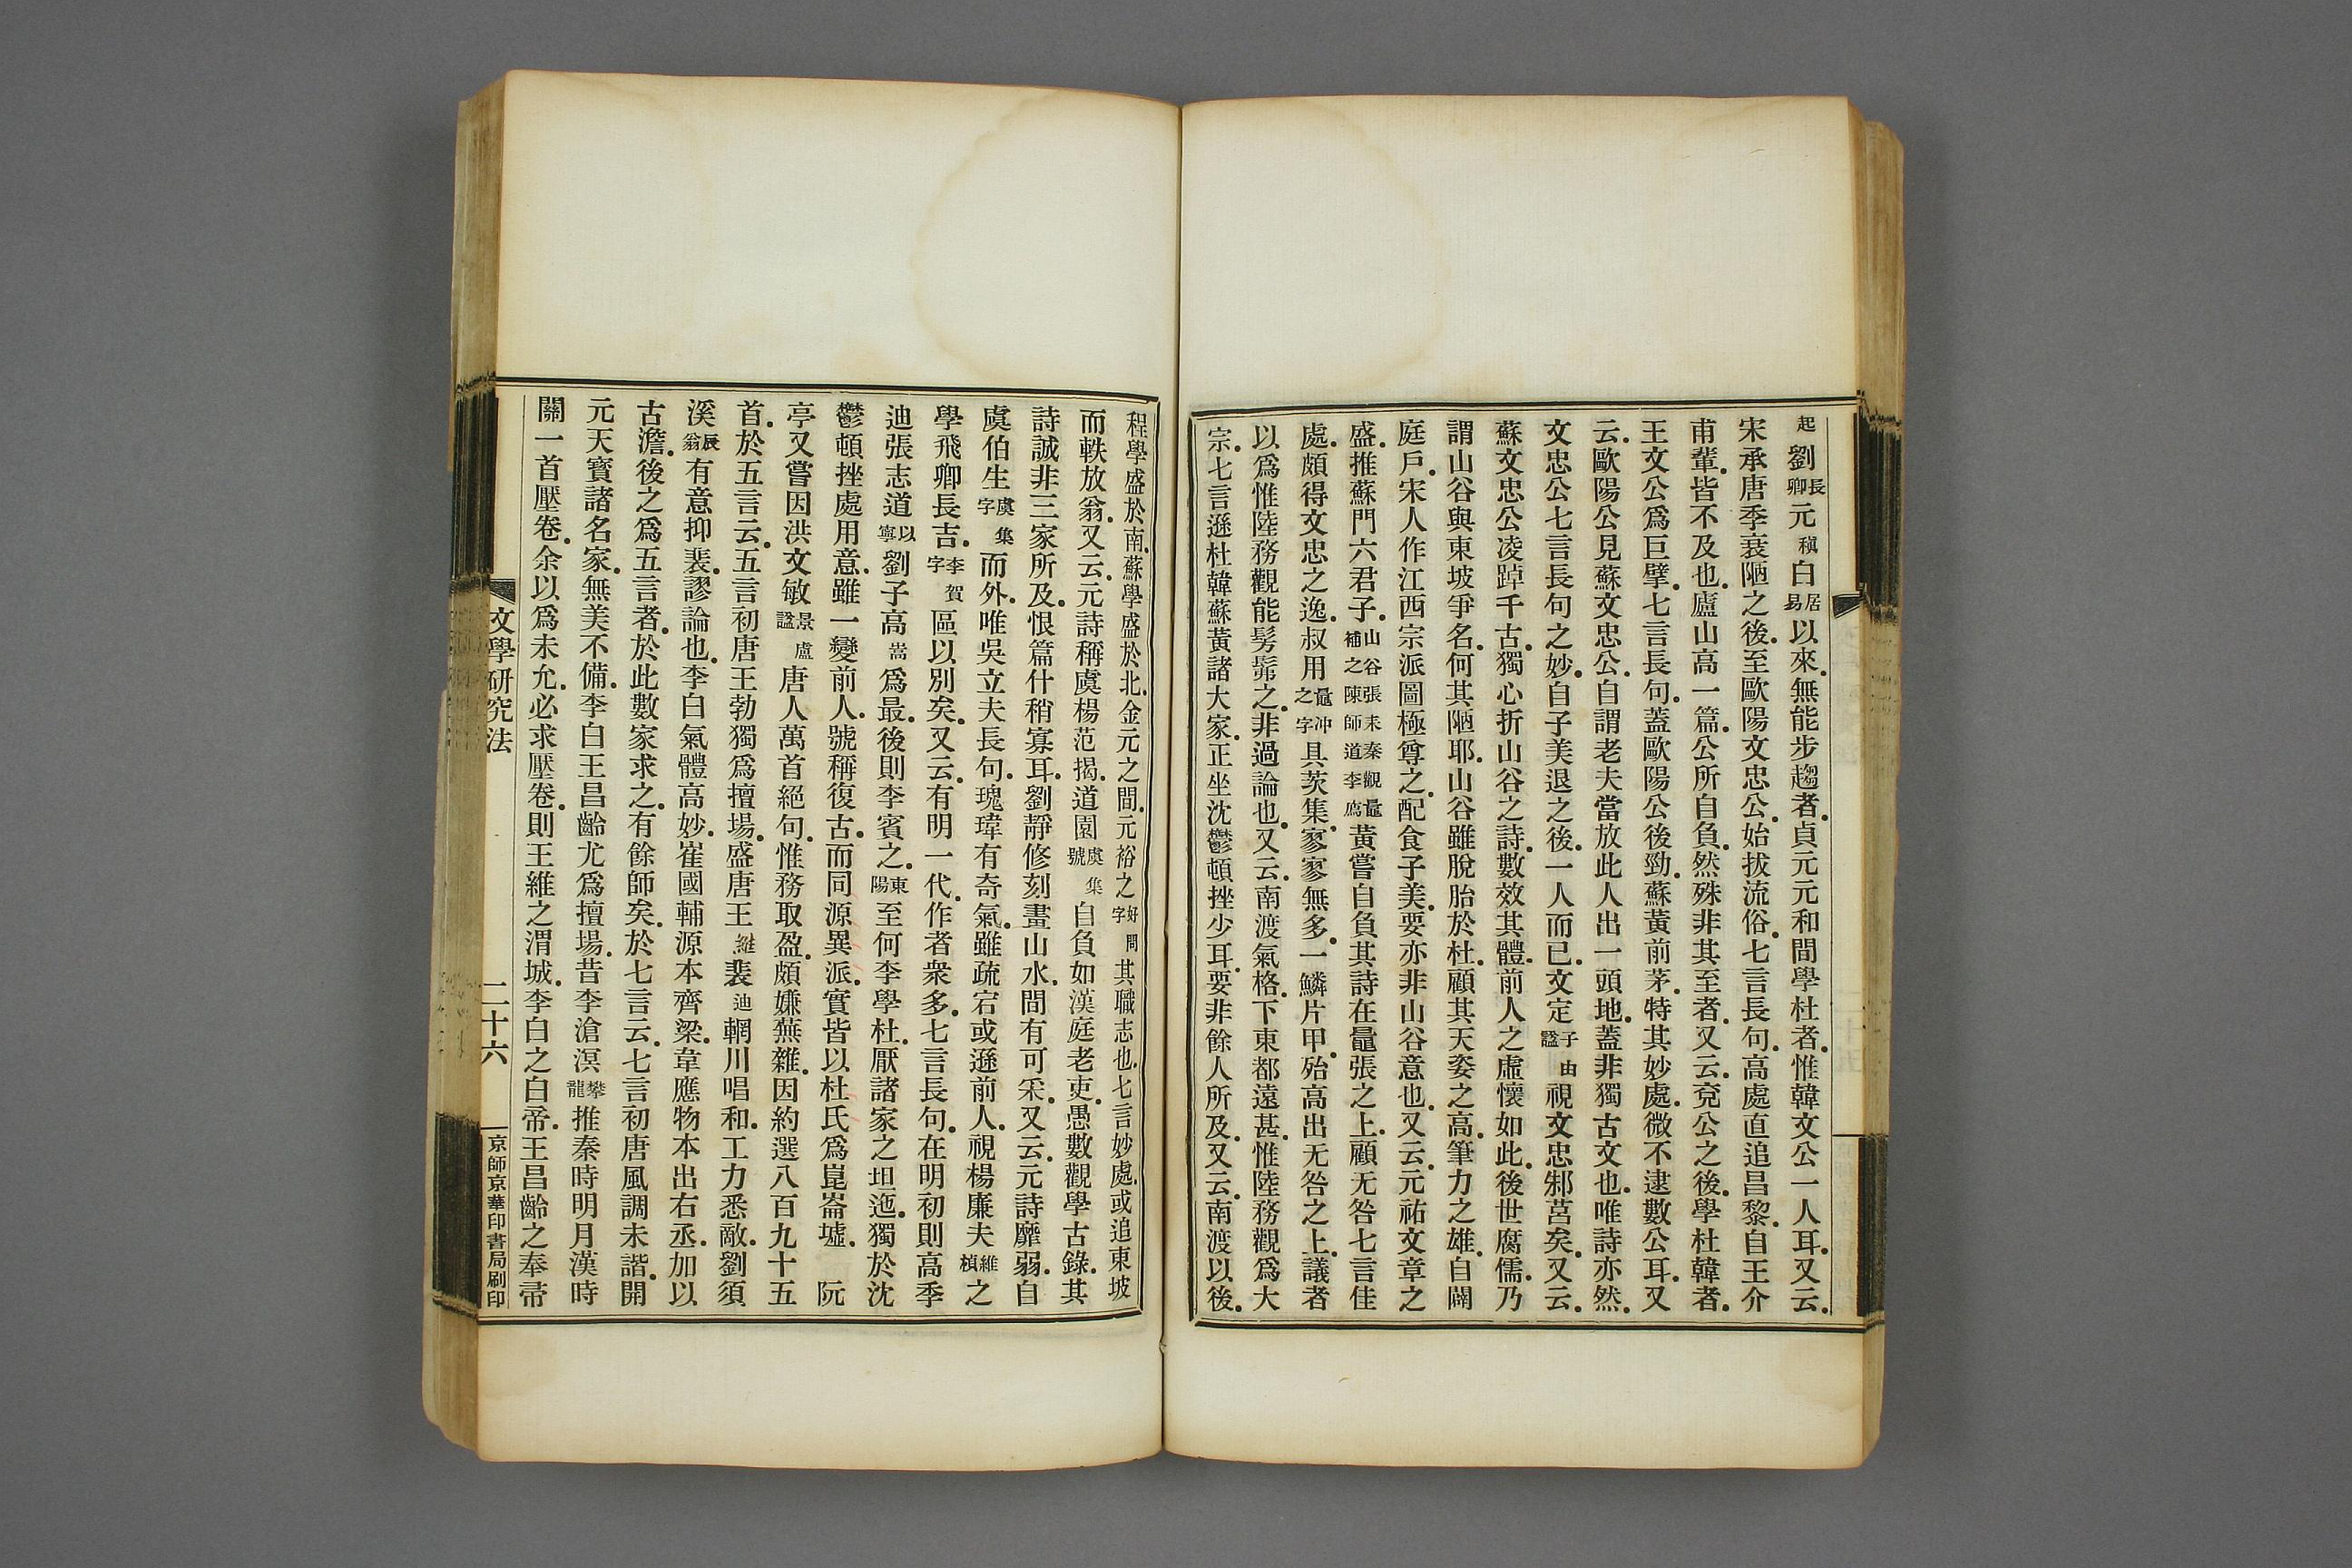 起劉長卿元稹白居易以來無能步趨者貞元元和間學杜者惟韓文公一人耳又云
宋承唐季衰陋之後至歐陽文忠公始拔流俗七言長句高處直追昌黎自王介
甫輩皆不及也廬山高一篇公所自負然殊非其至者又云兗公之後學杜韓者
王文公爲巨擘七言長句蓋歐陽公後勁蘇黃前茅特其妙處微不逮數公耳又
云歐陽公見蘇文忠公自謂老夫當放此人出一頭地蓋非獨古文也唯詩亦然
文忠公七言長句之妙自子美退之後一人而已文定子由諡視文忠邾莒矣又云
蘇文忠公凌踔千古獨心折山谷之詩數效其體前人之虛懷如此後世腐儒乃
謂山谷與東坡爭名何其陋耶山谷雖脫胎於杜顧其天姿之高筆力之雄自闢
庭戶宋人作江西宗派圖極尊之配食子美要亦非山谷意也又云元祐文章之
盛推蘇門六君子山谷張耒秦觀鼂補之陳師道李廌黃嘗自負其詩在鼂張之上顧无咎七言佳
處頗得文忠之逸叔用鼂冲之字具茨集寥寥無多一鱗片甲殆高出无咎之上議者
以爲惟陸務觀能髣髴之非過論也又云南渡氣格下東都遠甚惟陸務觀爲大
宗七言遜杜韓蘇黃諸大家正坐沈鬱頓挫少耳要非餘人所及又云南渡以後
程學盛於南蘇學盛於北金元之間元裕之好問字其職志也七言妙處或追東坡
而軼放翁又云元詩稱虞楊范揭道園虞集號自負如漢庭老吏愚數觀學古錄其
詩誠非三家所及恨篇什稍寡耳劉靜修刻畫山水間有可采又云元詩靡弱自
虞伯生虞集字而外唯吳立夫長句瑰瑋有奇氣雖疏宕或遜前人視楊廉夫維楨之
學飛卿長吉李賀字區以別矣又云有明一代作者衆多七言長句在明初則高季
迪張志道以寧劉子高嵩爲最後則李賓之東陽至何李學杜厭諸家之坦迤獨於沈
鬱頓挫處用意雖一變前人號稱復古而同源異派實皆以杜氏爲崑崙墟　阮
亭又嘗因洪文敏景盧諡唐人萬首絕句惟務取盈頗嫌蕪雜因約選八百九十五
首於五言云五言初唐王勃獨爲擅場盛唐王維裴迪輞川唱和工力悉敵劉須
溪辰翁有意抑裴謬論也李白氣體高妙崔國輔源本齊梁韋應物本出右丞加以
古澹後之爲五言者於此數家求之有餘師矣於七言云七言初唐風調未諧開
元天寶諸名家無美不備李白王昌齡尤爲擅場昔李滄溟攀龍推秦時明月漢時
關一首壓卷余以爲未允必求壓卷則王維之渭城李白之白帝王昌齡之奉帚
文學研究法
二十六
京師京華印書局刷印